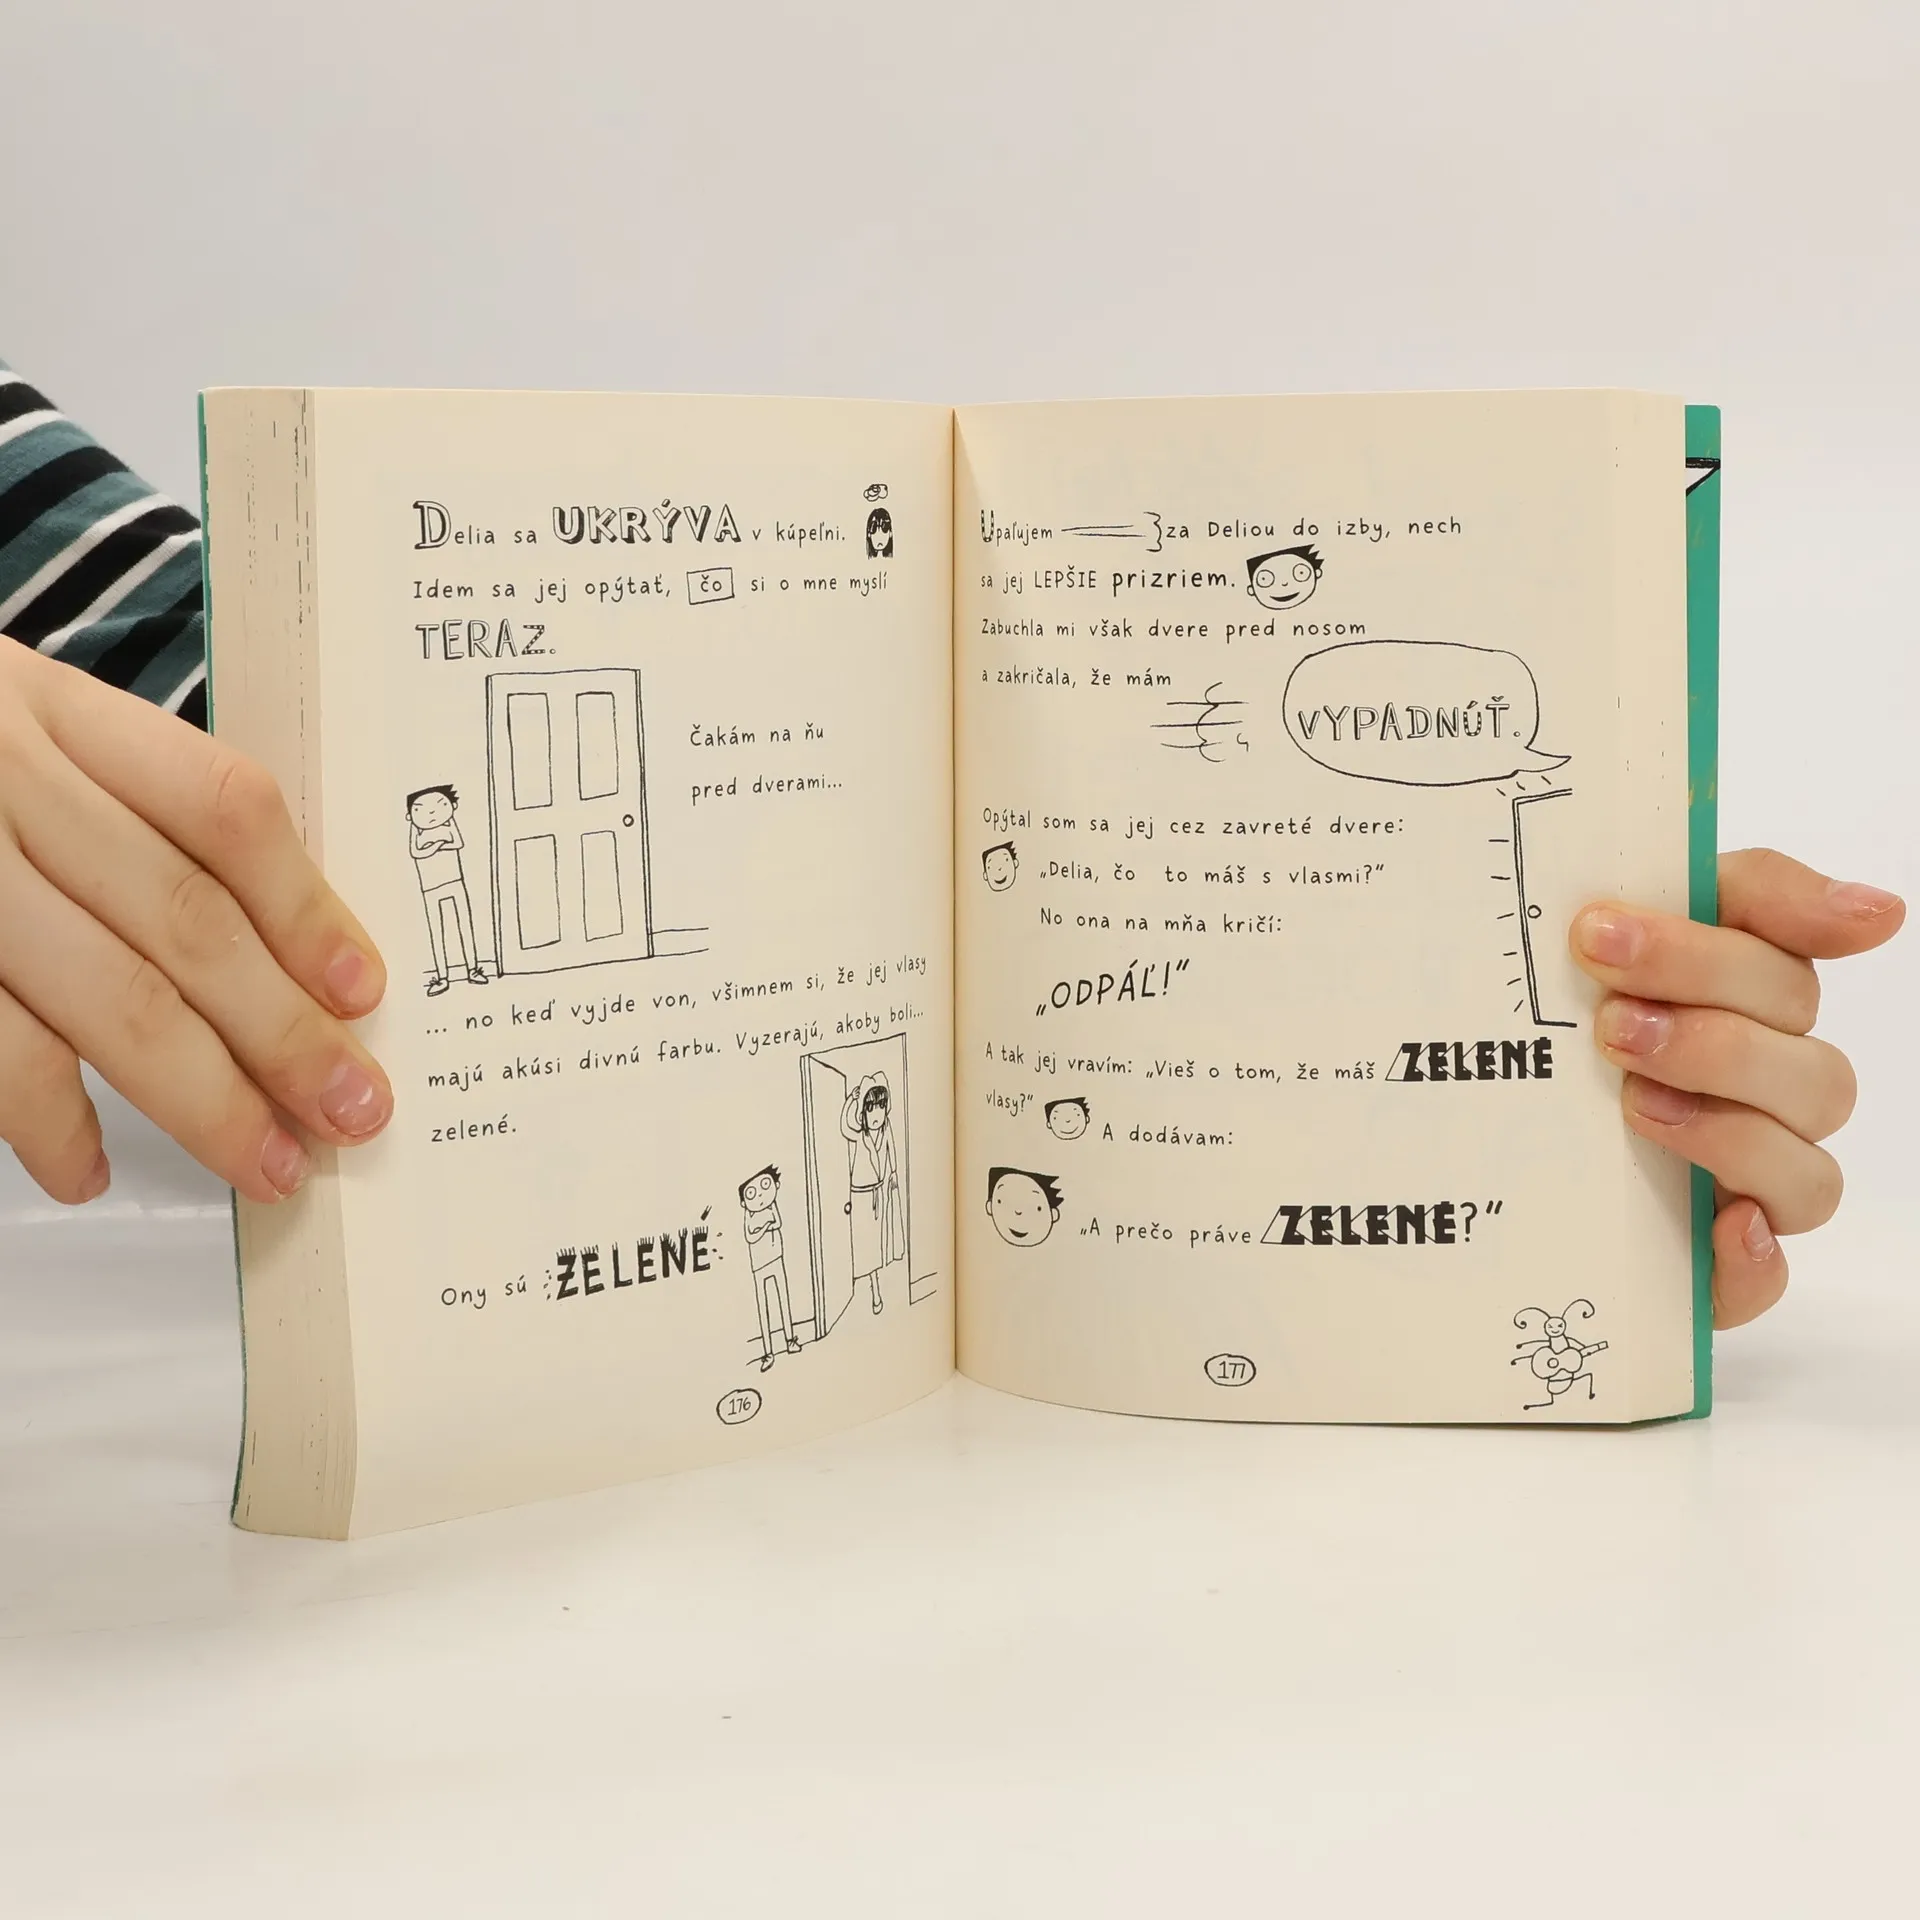 Delia sa UKRÝVA v kúpeľni.
Idem sa jej opýtať, čo si o mne myslí
TERAZ.
Čakám na ňu
pred dverami...
... no keď vyjde von, všimnem si, že jej vlasy
majú akúsi divnú farbu. Vyzerajú, akoby boli...
zelené.
Ony sú ZELENÉ
176
Upaľujem za Deliou do izby, nech
sa jej LEPŠIE prizriem.
Zabuchla mi však dvere pred nosom
a zakričala, že mám
VYPADNÚŤ.
Opýtal som sa jej cez zavreté dvere:
„Delia, čo to máš s vlasmi?“
No ona na mňa kričí:
„ODPÁĽ!“
A tak jej vravím: „Vieš o tom, že máš ZELENÉ
vlasy?“
A dodávam:
„A prečo práve ZELENÉ?“
177